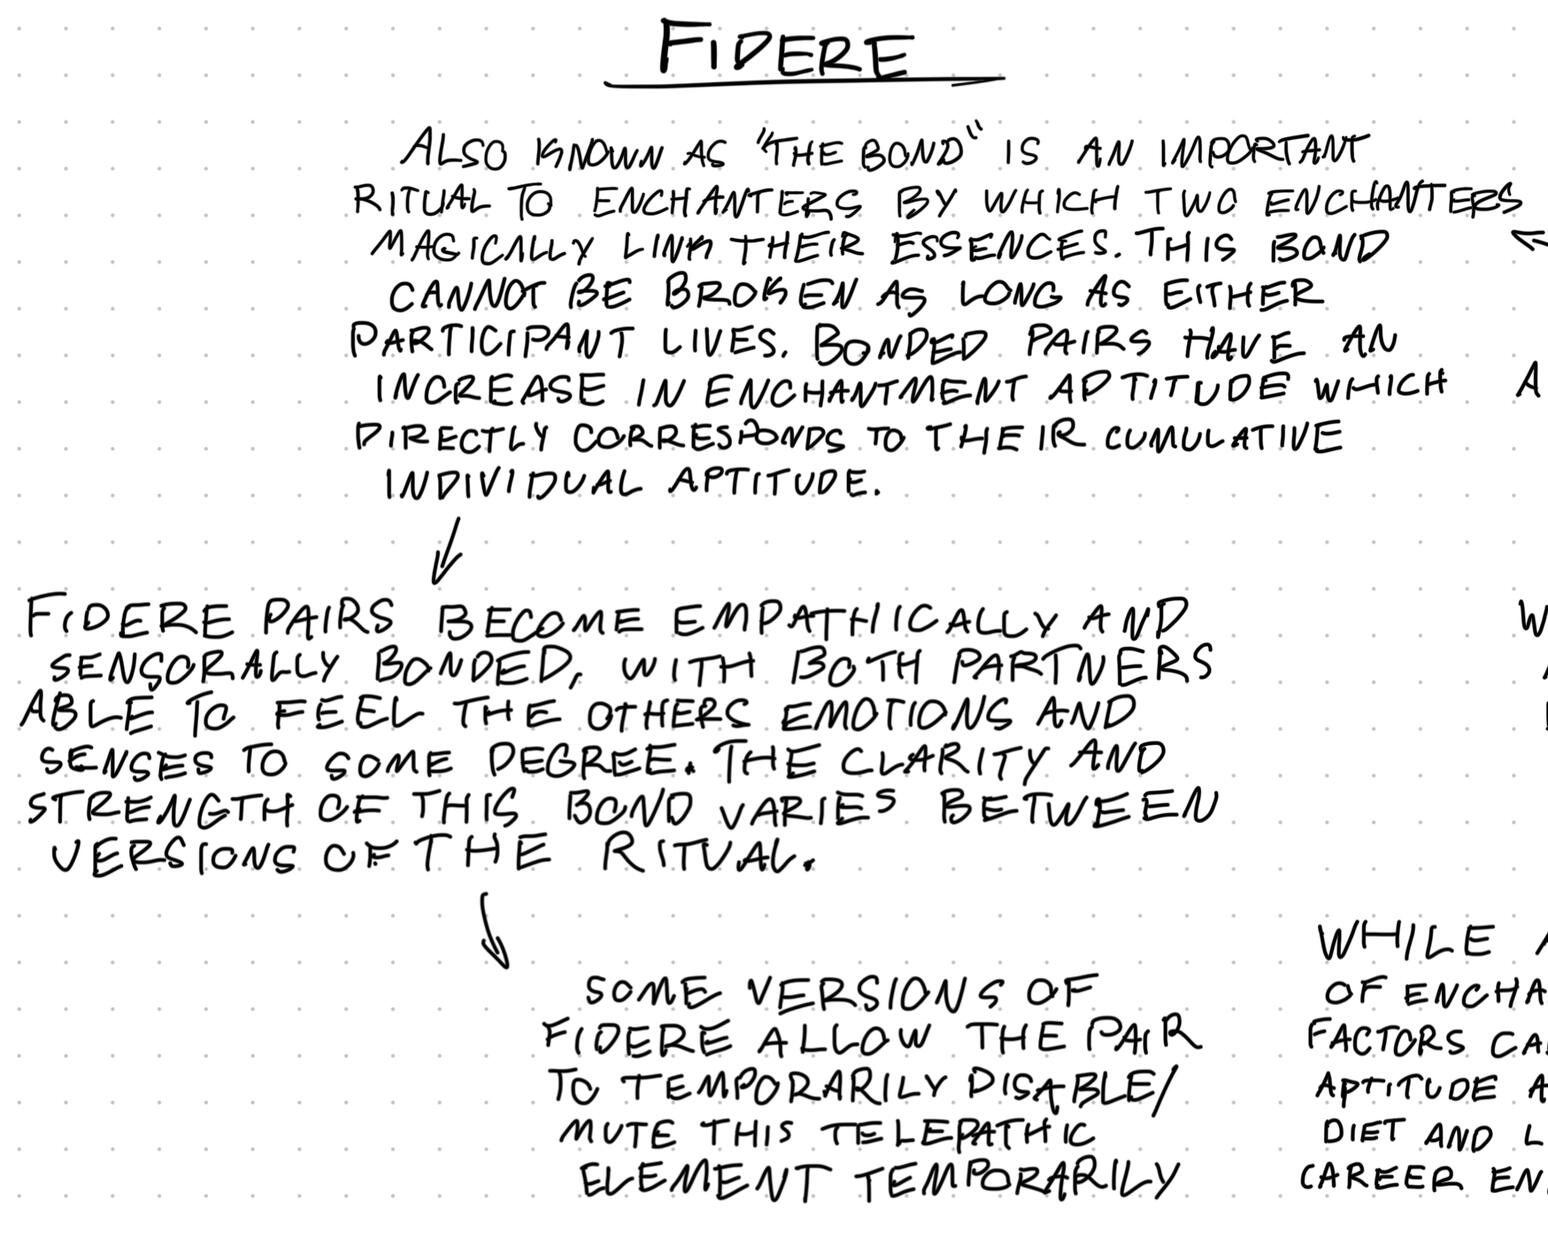 FIDERE
ALSO KNOWN AS "THE BOND" IS AN IMPORTANT
RITUAL TO ENCHANTERS BY WHICH TWO ENCHANTERS
MAGICALLY LINK THEIR ESSENCES. THIS BOND
CANNOT BE BROKEN AS LONG AS EITHER
PARTICIPANT LIVES. BONDED PAIRS HAVE AN
INCREASE IN ENCHANTMENT APTITUDE WHICH
DIRECTLY CORRESPONDS TO THEIR CUMULATIVE
INDIVIDUAL APTITUDE.
FIDERE PAIRS BECOME EMPATHICALLY AND
SENSORALLY BONDED, WITH BOTH PARTNERS
ABLE TO FEEL THE OTHERS EMOTIONS AND
SENSES TO SOME DEGREE. THE CLARITY AND
STRENGTH OF THIS BOND VARIES BETWEEN
VERSIONS OF THE RITUAL.
SOME VERSIONS OF
FIDERE ALLOW THE PAIR
TO TEMPORARILY DISABLE/
MUTE THIS TELEPATHIC
ELEMENT TEMPORARILY
A
W
WHILE A
OF ENCHA
FACTORS CA
APTITUDE A
DIET AND L
CAREER EN